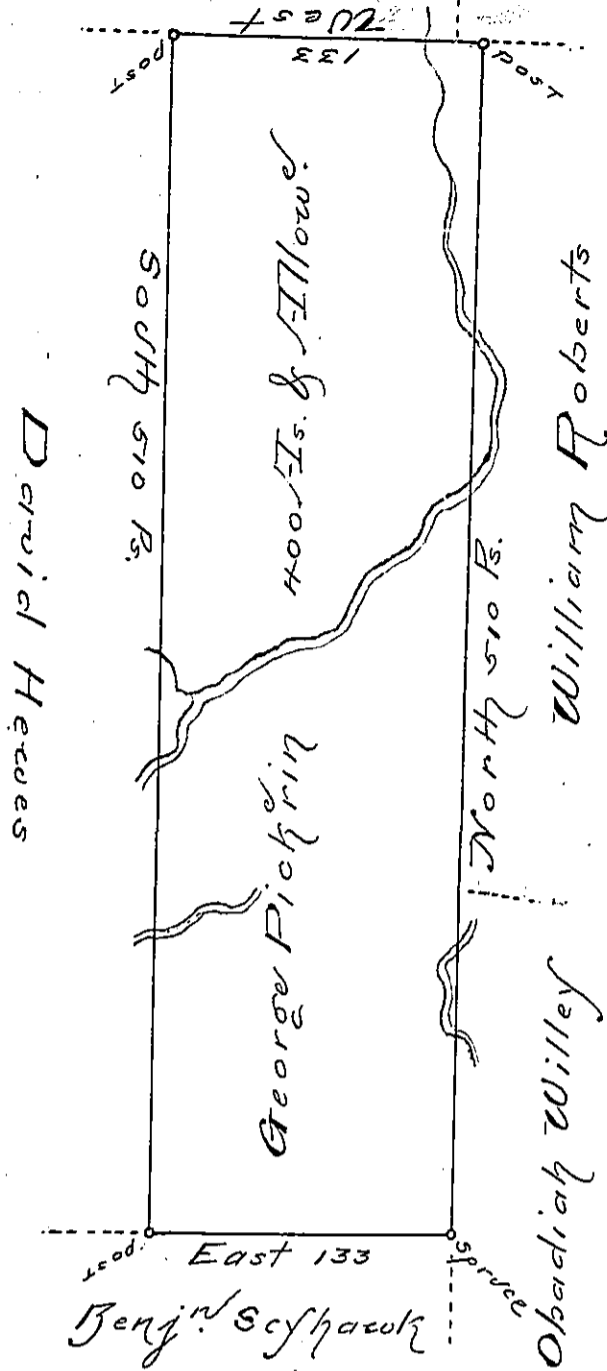 West
133
post
post
South 510 Ps.
400 As. & Allow.
North 510 Ps.
William Roberts
David Hewes
George Pickrin
Obadiah Willey
post
East 133
spruce
Benjn. Scyhawk